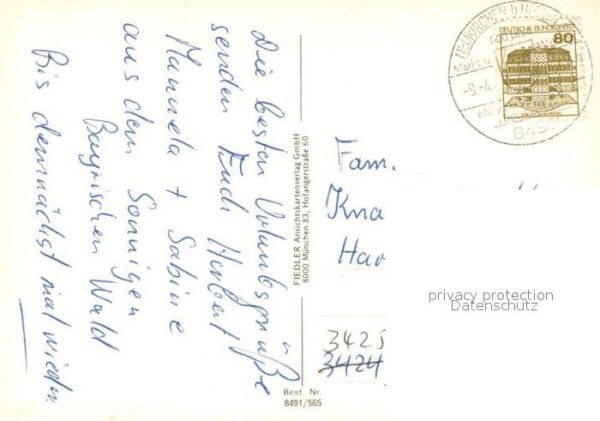 Die besten Urlaubsgrüße
senden Euch Herbert
Manuela + Sabine
aus dem Sonnigen
Bayrischen Wald
Bis demnächst mal wieder.
FIEDLER Ansichtskartenverlag GmbH
8000 München 83, Hofangerstraße 60
Best. Nr.
8491/565
DEUTSCHE BUNDESPOST
80
NEUKIRCHEN b HL
Fam.
Kna
Har
privacy protection
Datenschutz
3425
3424